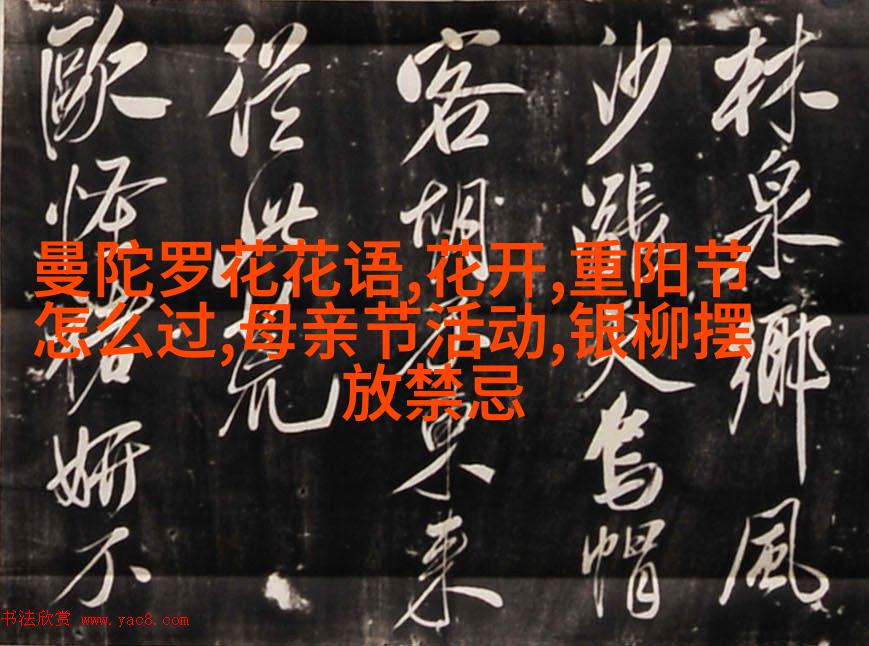 林泉鄉風
沙漲天烏帽
客胡為東來
從
歐妍不
曼陀罗花花语,花开,重阳节
怎么过,母亲节活动,银柳摆
放禁忌
书法欣赏 www.yac8.com